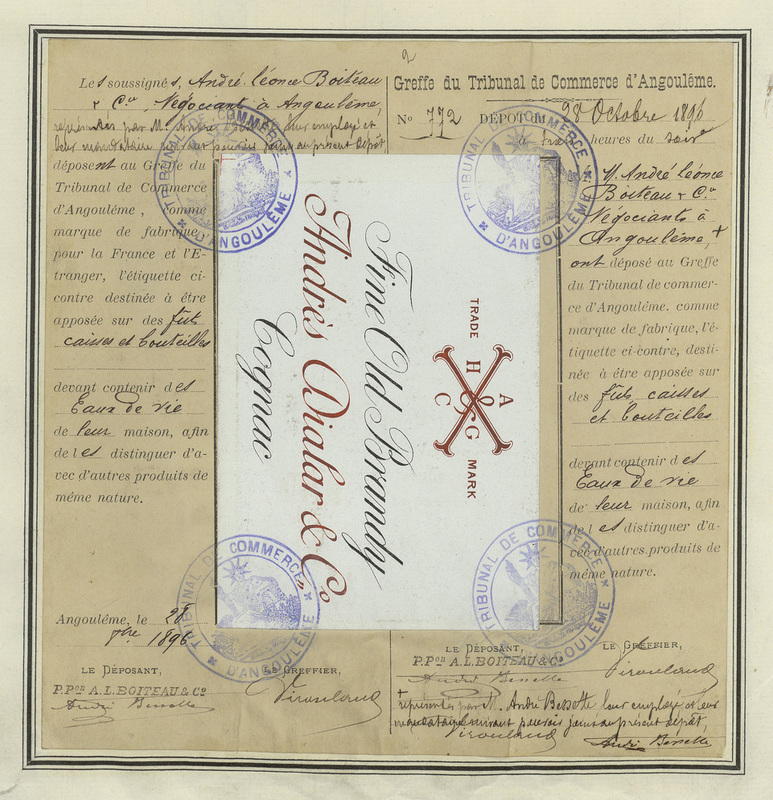 2
Les soussignés, André Léonce Boiteau
& Cie, Négociants à Angoulême,
représentés par M. André Bessette leur employé et
leur mandataire suivant pouvoir joint au présent dépôt
déposent au Greffe du
Tribunal de Commerce
d'Angoulême, comme
marque de fabrique,
pour la France et l'E-
tranger, l'étiquette ci-
contre destinée à être
apposée sur des fûts
caisses et bouteilles
devant contenir des
Eaux de vie
de leur maison, afin
de les distinguer d'a-
vec d'autres produits de
même nature.
Angoulême, le 28
8bre 1896
LE DÉPOSANT,
P.Pon A.L.BOITEAU & Co
André Bessette
LE GREFFIER,
Greffe du Tribunal de Commerce d'Angoulême.
No 772 DÉPOT DU 28 Octobre 1896
à trois heures du soir
M. André Léonce
Boiteau & Cie
Négociants à
Angoulême, +
ont déposé au Greffe
du Tribunal de commer-
ce d'Angoulême. comme
marque de fabrique, l'é-
tiquette ci-contre, desti-
née à être apposée sur
des fûts, caisses
et bouteilles
devant contenir des
Eaux de vie
de leur maison, afin
de les distinguer d'a-
vec d'autres produits de
même nature.
LE DÉPOSANT,
P.Pon A.L.BOITEAU & Co
André Bessette
LE GREFFIER,
+ représentés par M. André Bessette leur employé et leur
mandataire suivant pouvoir joint au présent dépôt,
André Bessette
TRADE MARK
H A
& 
C G
Fine Old Brandy
Andrés Dialar & Co.
Cognac
TRIBUNAL DE COMMERCE D'ANGOULÊME
TRIBUNAL DE COMMERCE D'ANGOULÊME
TRIBUNAL DE COMMERCE D'ANGOULÊME
TRIBUNAL DE COMMERCE D'ANGOULÊME